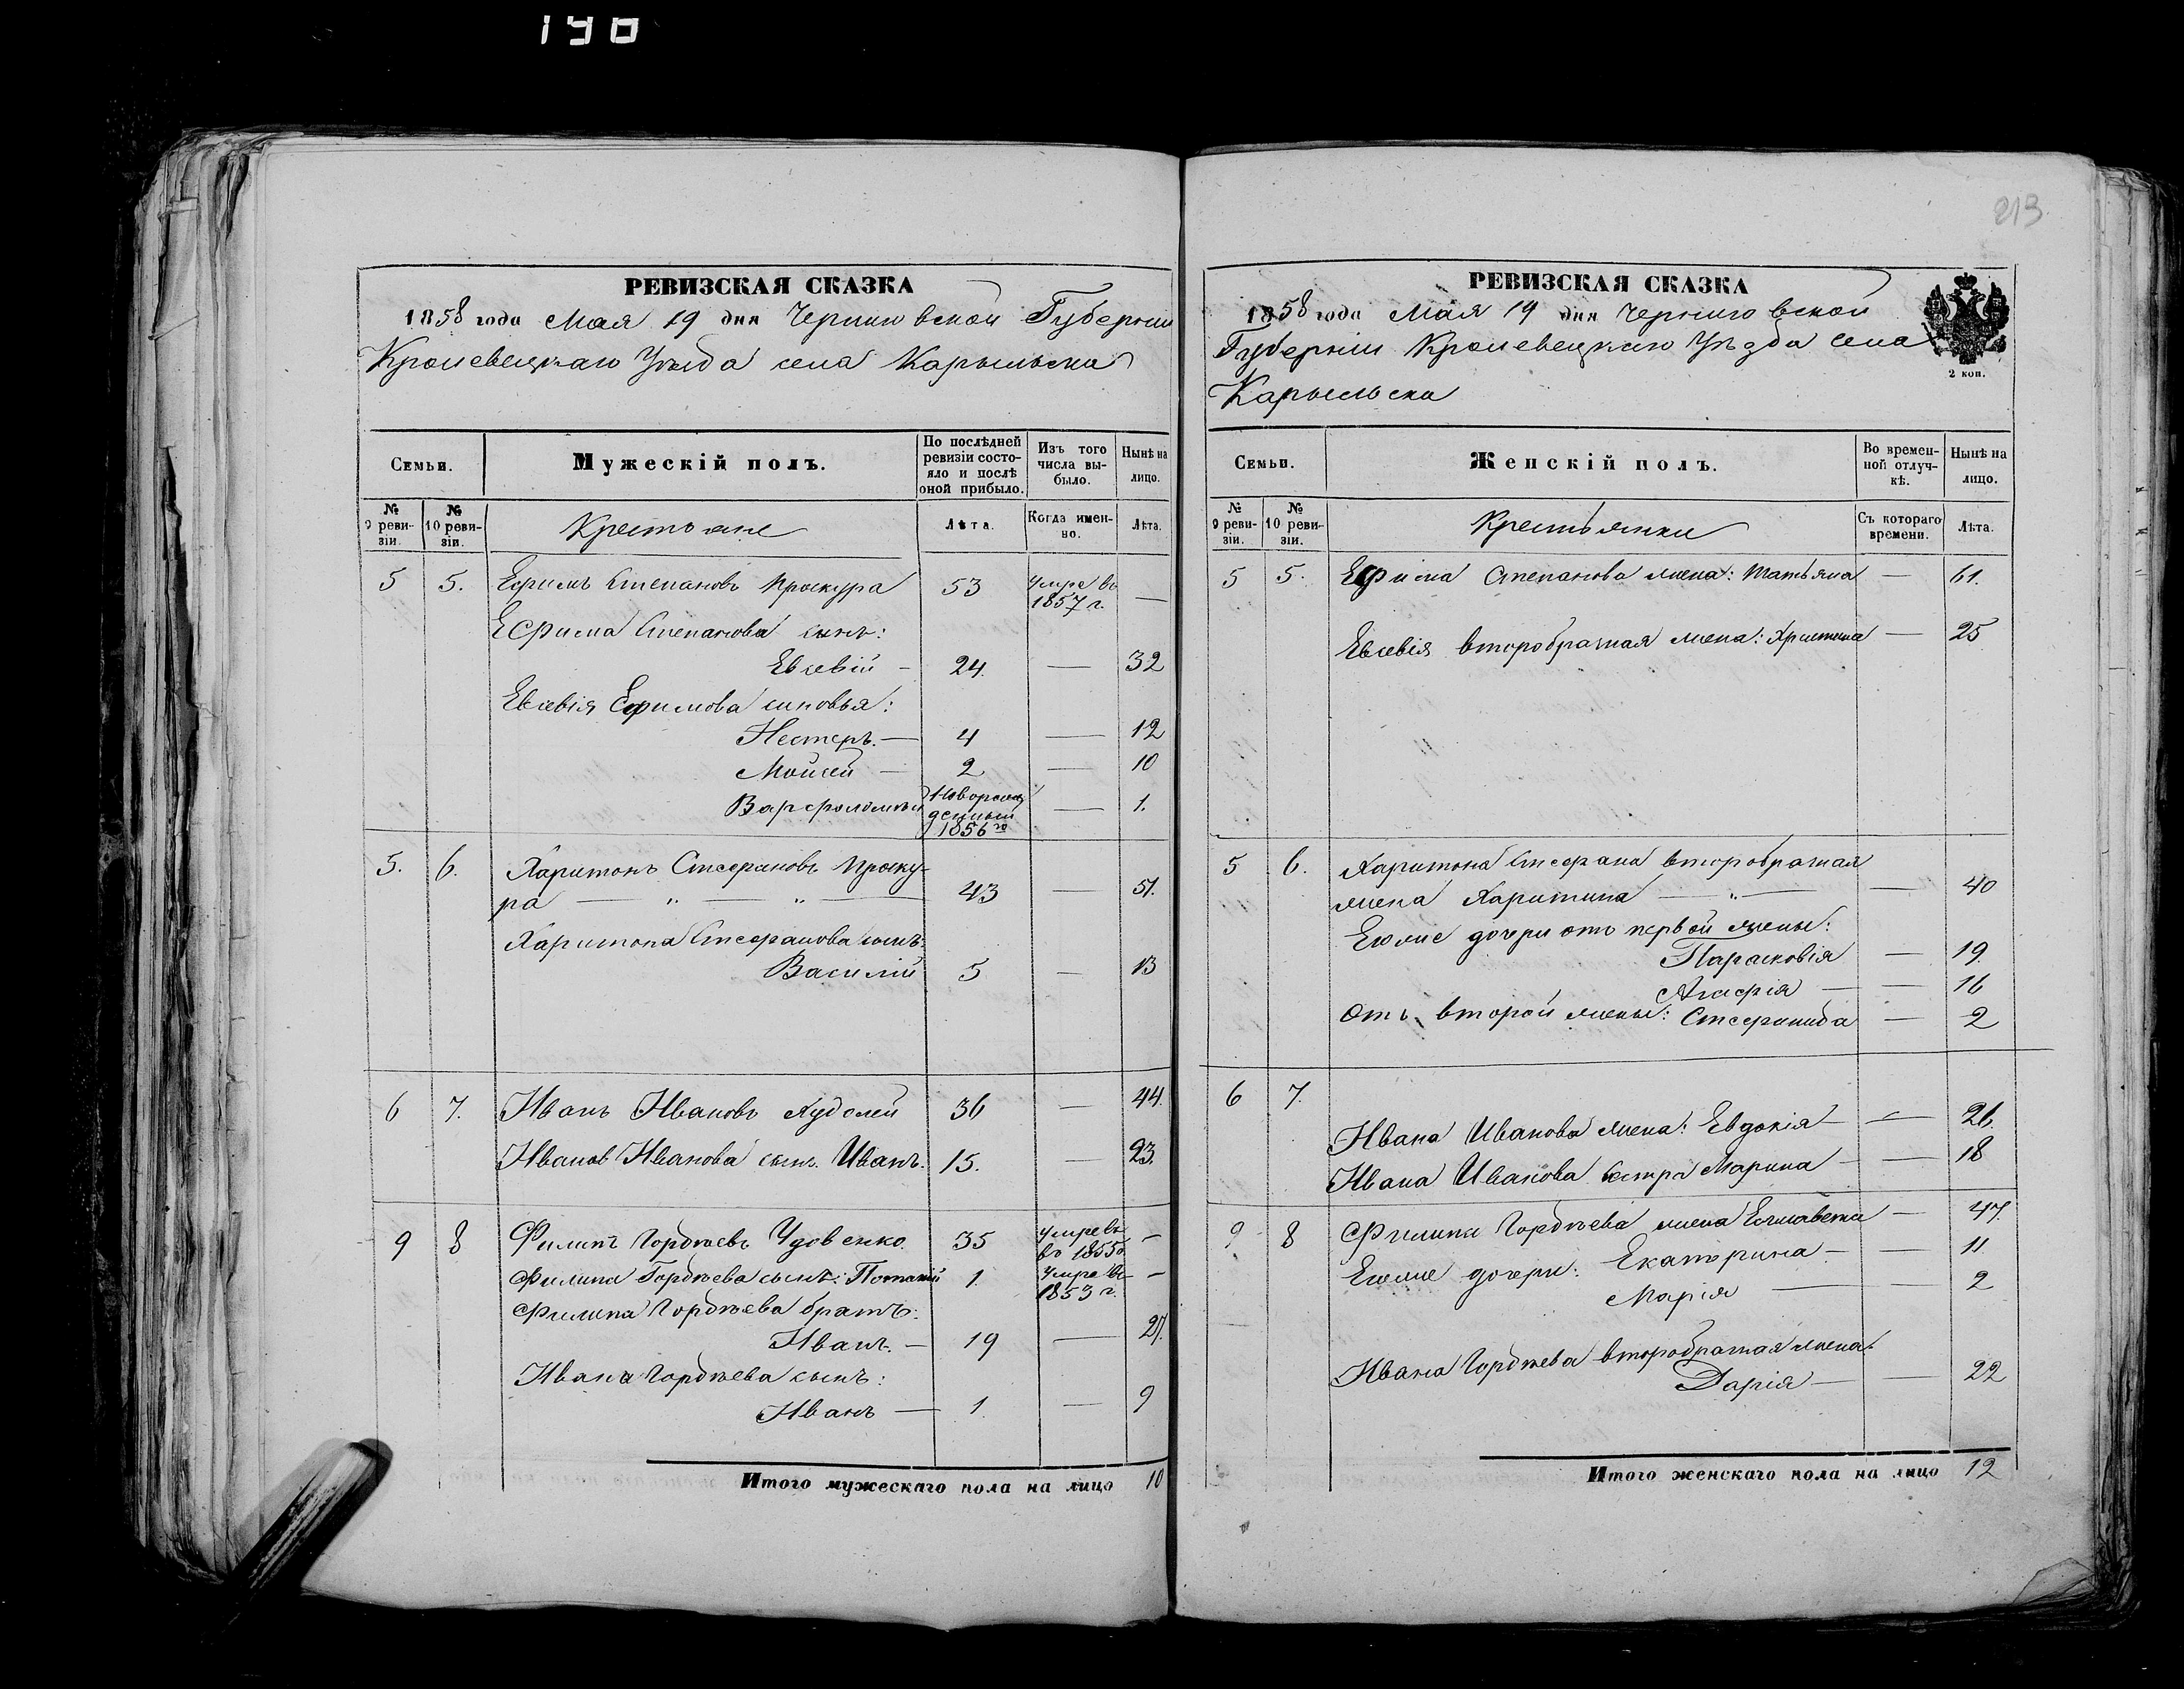 196
РЕВИЗСКАЯ СКАЗКА
1858 года Мая 19 дня Черниговской Губернии
Кролевецкаго Уѣзда села Карыльска
Семьи.
Мужескій полъ.
По послѣдней ревизіи состояло и послѣ оной прибыло.
Изъ того числа выбыло.
Нынѣ на лицо.
№ 9 ревизіи.
№ 10 ревизіи.
Крестьяне
Лѣта.
Когда именно.
Лѣта.
5 5. Ефимъ Степановъ Проскура 53 умре въ 1857 г. —
Ефима Степанова сынъ:
Евсевій — 24. — 32
Евсевія Ефимова сыновья:
Нестеръ. — 4 — 12
Мойсей — 2 — 10
Варфоломей Новорожденный 1856го — 1.
5. 6. Харитонъ Стефановъ Проску-
ра — „ — „ — 43 — 51.
Харитона Стефанова сынъ:
Василій 5 — 13
6 7. Иванъ Ивановъ Худолей 36 — 44.
Иванов Иванова сынъ. Иванъ. 15. — 23.
9 8 Филипъ Гордѣевъ Удовенко. 35 умре въ въ 1855г. —
Филипа Гордѣева сынъ: Потапій 1. Умре въ 1853 г. —
Филипа Гордѣева братъ:
Иванъ. — 19 — 27.
Ивана Гордѣева сынъ:
Иванъ — 1. — 9
Итого мужескаго пола на лицо 10
213
РЕВИЗСКАЯ СКАЗКА
1858 года Мая 19 дня Черниговской
Губерніи Кролевецкаго Уѣзда села
Карыльска
2 коп.
Семьи.
Женскій полъ.
Во временной отлучкѣ.
Нынѣ на лицо.
№ 9 ревизіи.
№ 10 ревизіи.
Крестьянки
Съ котораго времени.
Лѣта.
5 5. Ефима Степанова жена: Татьяна — 61.
Евсевія второбрачная жена: Христина — 25
5 6. Харитона Стефана второбрачная
жена Харитина — „ — — 40
Егоже дочери отъ первой жены:
Парасковія — 19.
Агафія — — 16
Отъ второй жены: Стефанида — 2
6 7.
Ивана Иванова жена: Евдокія — — 26.
Ивана Иванова сестра Марина — — 18
9 8 Филипа Гордѣева жена Елисавета — 47.
Егоже дочери: Екатерина — — 11
Марія — — 2
Ивана Гордѣева второбрачная жена:
Дарія — — 22
Итого женскаго пола на лицо 12